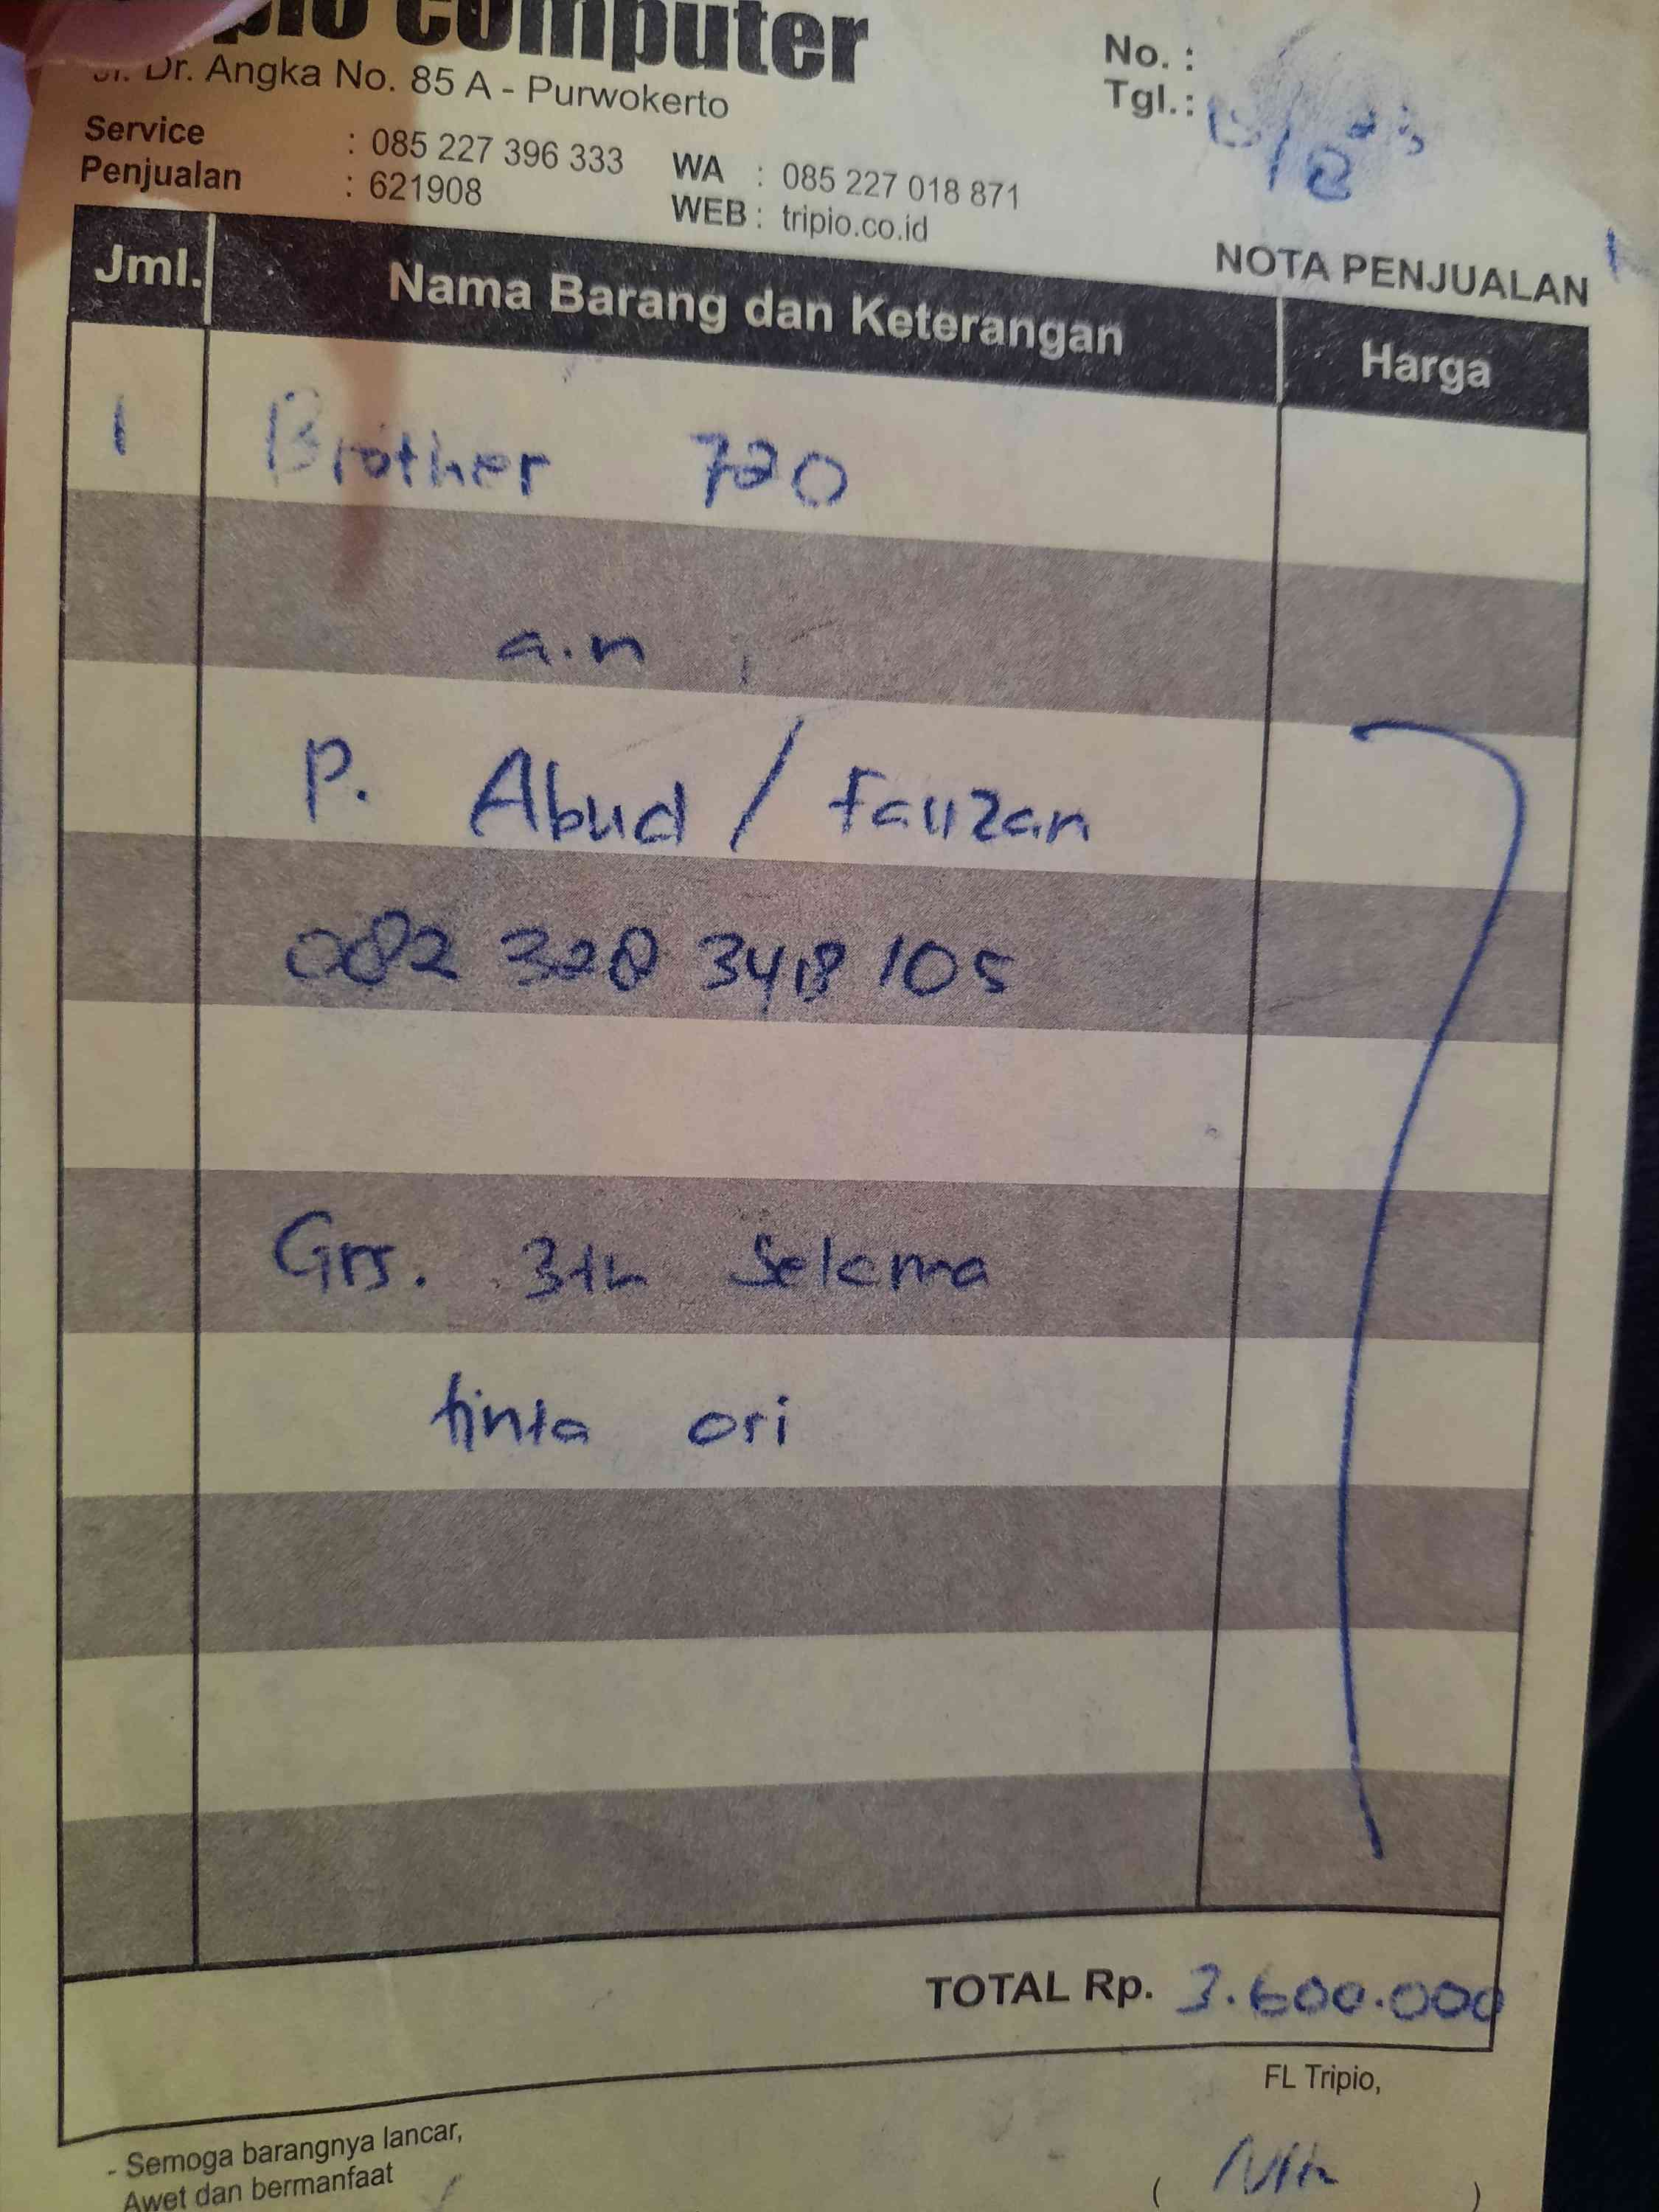 computer
Jl. Dr. Angka No. 85 A - Purwokerto
Service : 085 227 396 333
Penjualan : 621908
WA : 085 227 018 871
WEB : tripio.co.id
No. :
Tgl. :
NOTA PENJUALAN
Jml. Nama Barang dan Keterangan Harga
1 Brother 720
a.n
P. Abud / Fauzan
082 328 3418 105
Grs. 3th Selama
tinta ori
TOTAL Rp. 3.600.000
FL Tripio,
- Semoga barangnya lancar,
Awet dan bermanfaat
( )